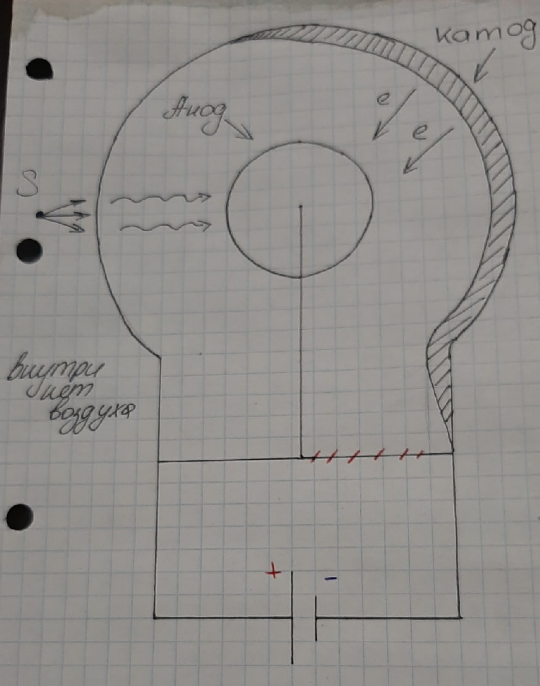 катод
Анод
e
e
S
внутри
нет
воздуха
+ -